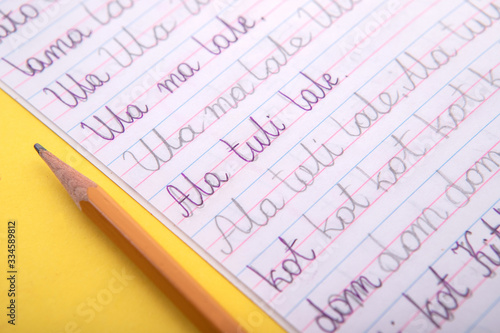 lama la
Ula Ula
Ula ma lale.
Ula ma lale Ula
Ala tuli lale.
Ala tuli lale. Ala tuli
kot kot kot kot kot
dom dom dom dom
kot Kit
Adobe Stock | #334589812